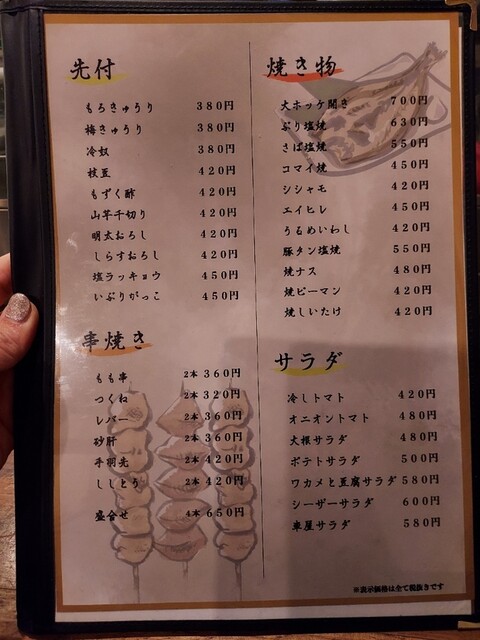 先付
もろきゅうり 380円
梅きゅうり 380円
冷奴 380円
枝豆 420円
もずく酢 420円
山芋千切り 420円
明太おろし 420円
しらすおろし 420円
塩ラッキョウ 450円
いぶりがっこ 450円
串焼き
もも串 2本 360円
つくね 2本 320円
レバー 2本 360円
砂肝 2本 360円
手羽先 2本 420円
ししとう 2本 420円
盛合せ 4本 650円
焼き物
大ホッケ開き 700円
ぶり塩焼 630円
さば塩焼 550円
コマイ焼 450円
シシャモ 420円
エイヒレ 450円
うるめいわし 420円
豚タン塩焼 550円
焼ナス 480円
焼ピーマン 420円
焼しいたけ 420円
サラダ
冷しトマト 420円
オニオントマト 480円
大根サラダ 480円
ポテトサラダ 500円
ワカメと豆腐サラダ 580円
シーザーサラダ 600円
車屋サラダ 580円
※表示価格は全て税抜きです